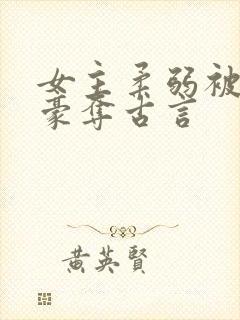 女主柔弱被
豪夺古言
黄英贤